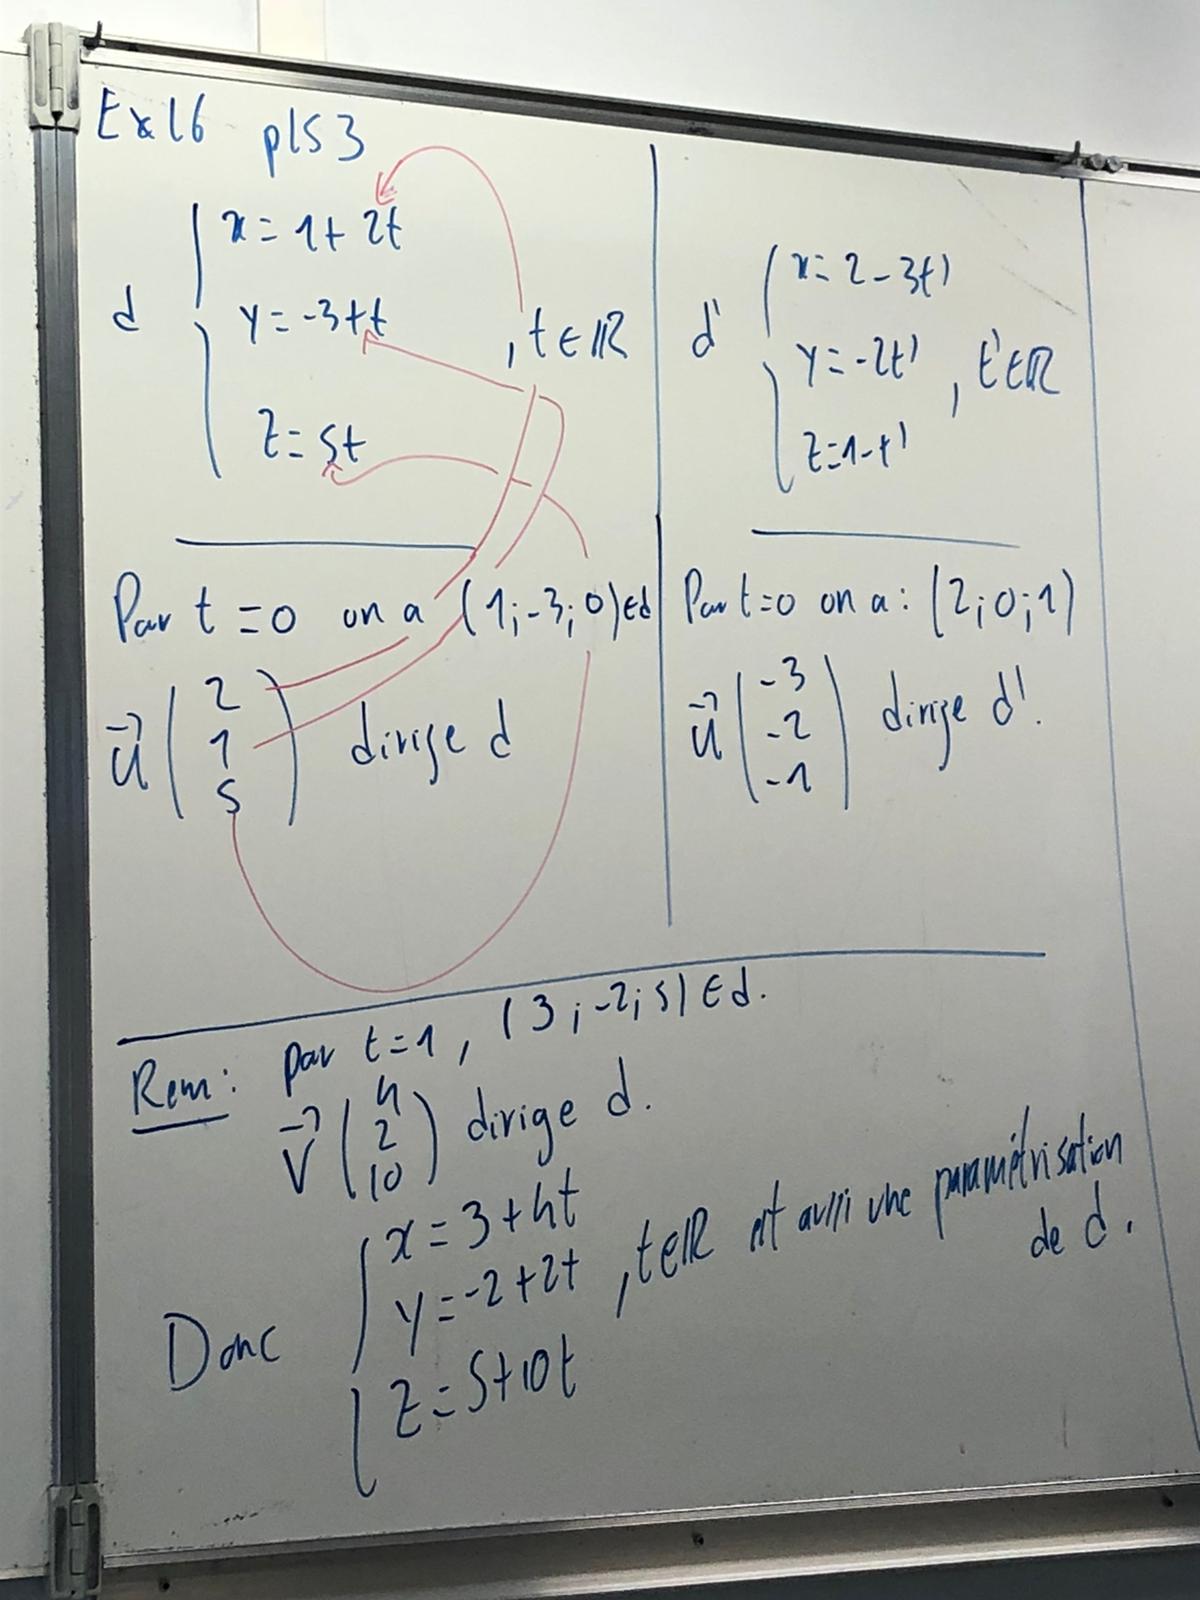 Ex 16 p153
d { x = 1 + 2t
y = -3 + t
z = 5t
, t ∈ ℝ
Par t = 0 on a (1 ; -3 ; 0) ∈ d
u⃗ ( 2
1
5 ) dirige d
d' { x = 2 - 3t'
y = -2t'
z = 1 - t'
, t' ∈ ℝ
Par t = 0 on a : (2 ; 0 ; 1)
u⃗ ( -3
-2
-1 ) dirige d'.
Rem : par t = 1 , (3 ; -2 ; 5) ∈ d.
v⃗ ( 4
2
10 ) dirige d.
Donc { x = 3 + 4t
y = -2 + 2t
z = 5 + 10t
, t ∈ ℝ est aussi une paramétrisation
de d.